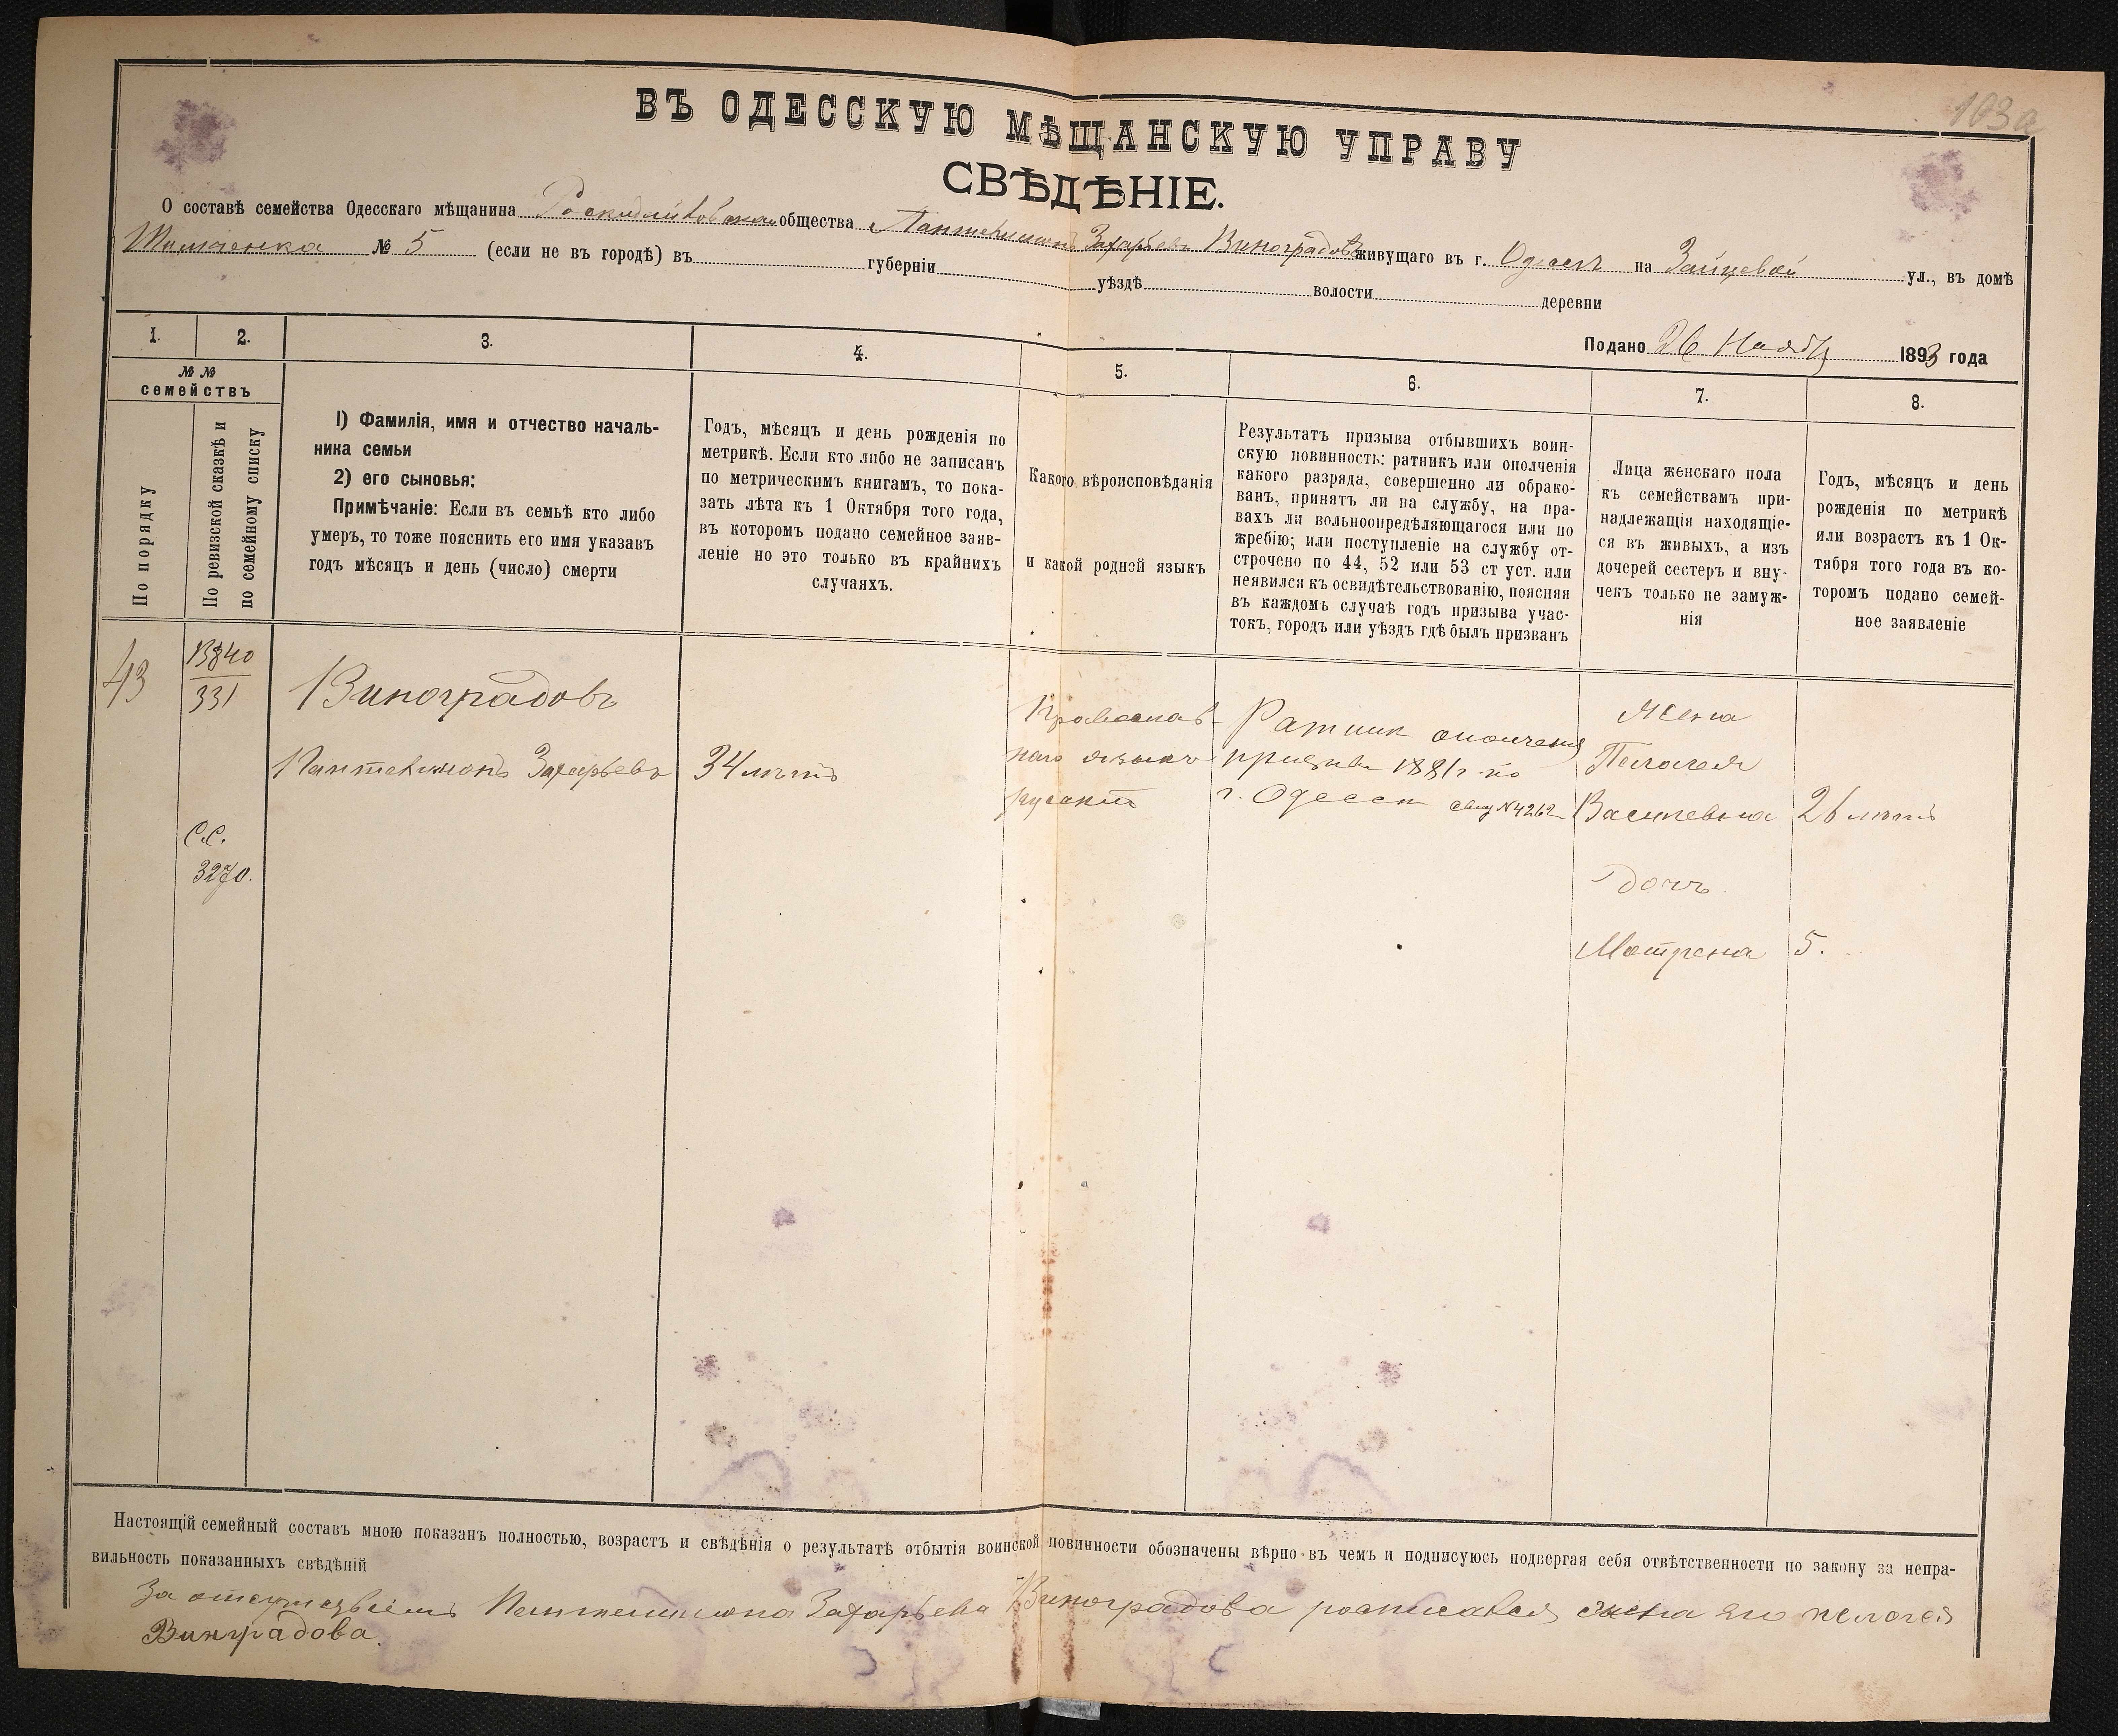 103а
ВЪ ОДЕССКУЮ МѢЩАНСКУЮ УПРАВУ
СВѢДѢНІЕ.
О составѣ семейства Одесскаго мѣщанина общества Пантелимонъ Захарьевъ Виноградовъ живущаго въ г. Одессѣ на Зайцевой ул., въ домѣ
№ 5 (если не въ городѣ) въ губерніи уѣздѣ волости деревни
Подано 26 Ноября 1893 года
1. 2. 3. 4. 5. 6. 7. 8.
№ №
семействъ
По порядку
По ревизской сказкѣ и
по семейному списку
1) Фамилія, имя и отчество началь-
ника семьи
2) его сыновья:
Примѣчаніе: Если въ семьѣ кто либо
умеръ, то тоже пояснить его имя указавъ
годъ мѣсяцъ и день (число) смерти
Годъ, мѣсяцъ и день рожденія по
метрикѣ. Если кто либо не записанъ
по метрическимъ книгамъ, то пока-
зать лѣта къ 1 Октября того года,
въ которомъ подано семейное заяв-
леніе но это только въ крайнихъ
случаяхъ.
Какого вѣроисповѣданія
и какой родной языкъ
Результатъ призыва отбывшихъ воин-
скую повинность: ратникъ или ополченія
какого разряда, совершенно ли обрако-
ванъ, принятъ ли на службу, на пра-
вахъ ли вольноопредѣляющагося или по
жребію; или поступленіе на службу от-
строчено по 44, 52 или 53 ст уст. или
неявился къ освидѣтельствованію, поясняя
въ каждомъ случаѣ годъ призыва учас-
токъ, городъ или уѣздъ гдѣ былъ призванъ
Лица женскаго пола
къ семействамъ при-
надлежащія находящіе-
ся въ живыхъ, а изъ
дочерей сестеръ и вну-
чекъ только не замуж-
нія
Годъ, мѣсяцъ и день
рожденія по метрикѣ
или возрастъ къ 1 Ок-
тября того года въ ко-
торомъ подано семей-
ное заявленіе
43
13840
331
С.С.
3270.
Виноградовъ
Пантелимонъ Захарьевъ
34 лѣтъ
Православ-
наго языкъ
рускій
Ратник ополченія
призыва 1881 г. по
г. Одессе свид №4262
Жена
Пелагея
Василевна
26 лѣтъ
Дочь
Мотрена
5.
Настоящій семейный составъ мною показанъ полностью, возрастъ и свѣдѣнія о результатѣ отбытія воинской повинности обозначены вѣрно въ чемъ и подписуюсь подвергая себя отвѣтственности по закону за непра-
вильность показанныхъ свѣдѣній
За отсуцтвіемъ Пантелимона Захарьева Виноградова росписалася жена его пелогея
Винградова.